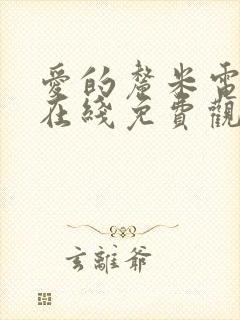 愛的釐米電
在綫免費觀
玄離爺